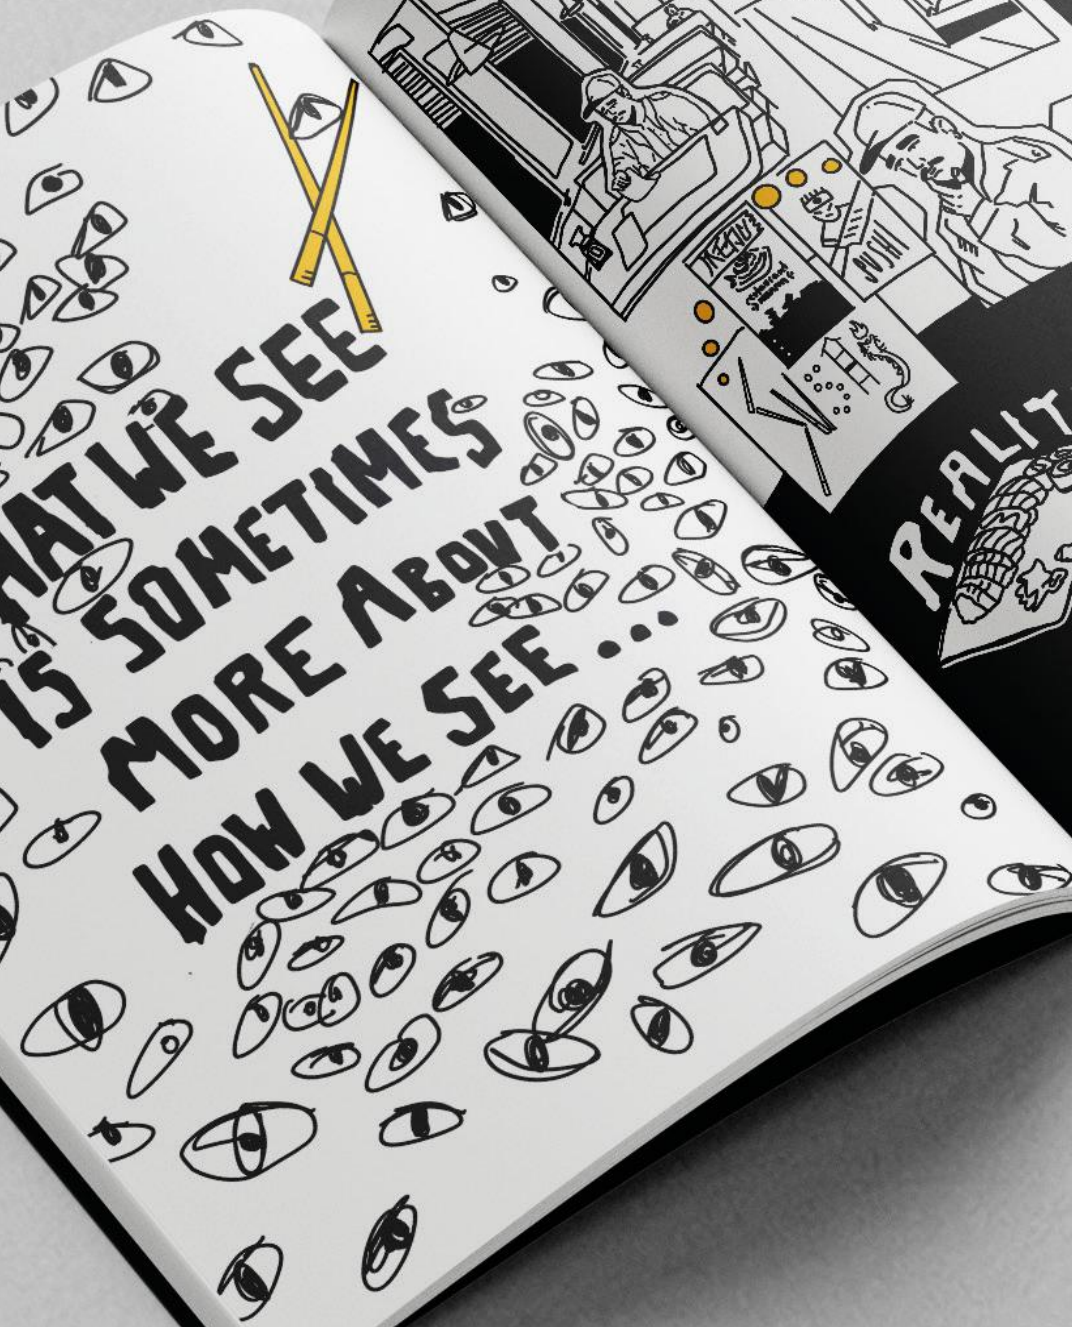 HAT WE SEE
IS SOMETIMES
MORE ABOUT
HOW WE SEE...
SUSHI
REALIT